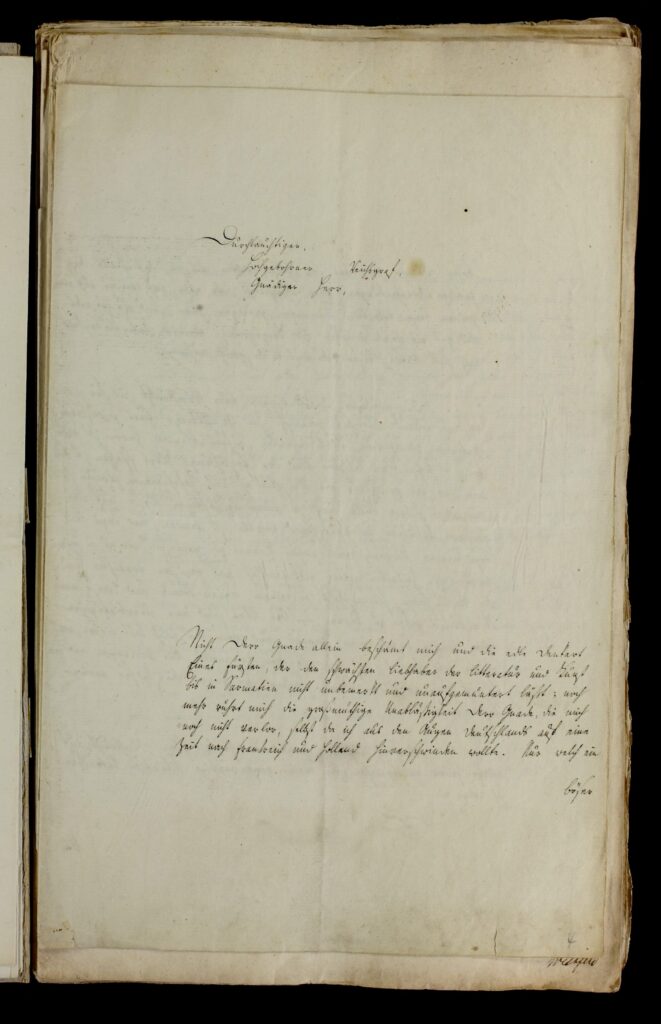 Durchlauchtiger,
Hochgebohrner Reichsgraf,
Gnädiger Herr,
Nicht Dero Gnade allein beschämt mich und die edle Denkart
Eines Fürsten, der den schwächsten Liebhaber der Litteratur und Kunst
bis in Sarmatien nicht unbemerkt und unaufgemuntert läßt: noch
mehr rührt mich die großmüthige Unabläßigkeit Dero Gnade, die mich
noch nicht verlor, selbst da ich aus den Augen Deutschlands auf eine
Zeit nach Frankreich und Holland hinverschwinden wollte. Nur welch ein
böser